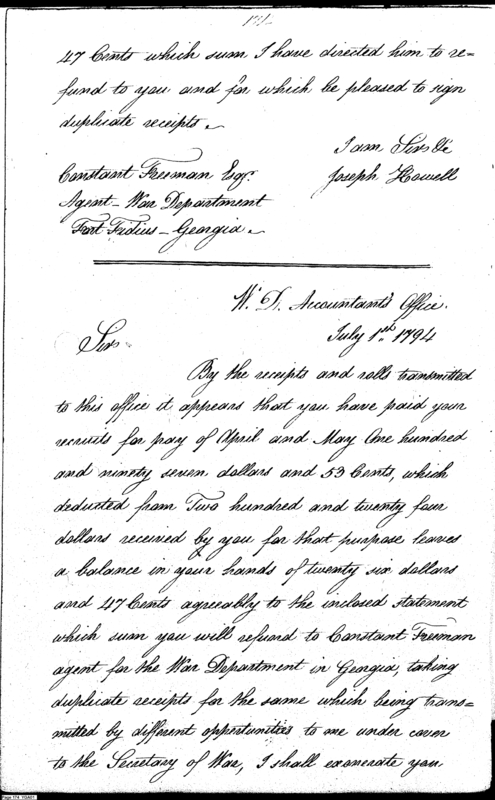 174
47 Cents which sum I have directed him to re=
fund to you and for which be pleased to sign
duplicate receipts.
I am Sir &c
Constant Freeman Esqr.
Joseph Howell
Agent - War Department
Fort Fidius - Georgia.
W. D. Accountants Office.
July 1st. 1794
Sir
By the receipts and rolls transmitted
to this office it appears that you have paid your
recruits for pay of April and May One hundred
and ninety seven dollars and 53 Cents, which
deducted from Two hundred and twenty four
dollars received by you for that purpose leaves
a balance in your hands of twenty six dollars
and 47 Cents agreeably to the inclosed statement
which sum you will refund to Constant Freeman
agent for the War Department in Georgia, taking
duplicate receipts for the same which being trans=
mitted by different opportunities to me under cover
to the Secretary of War, I shall exonerate you